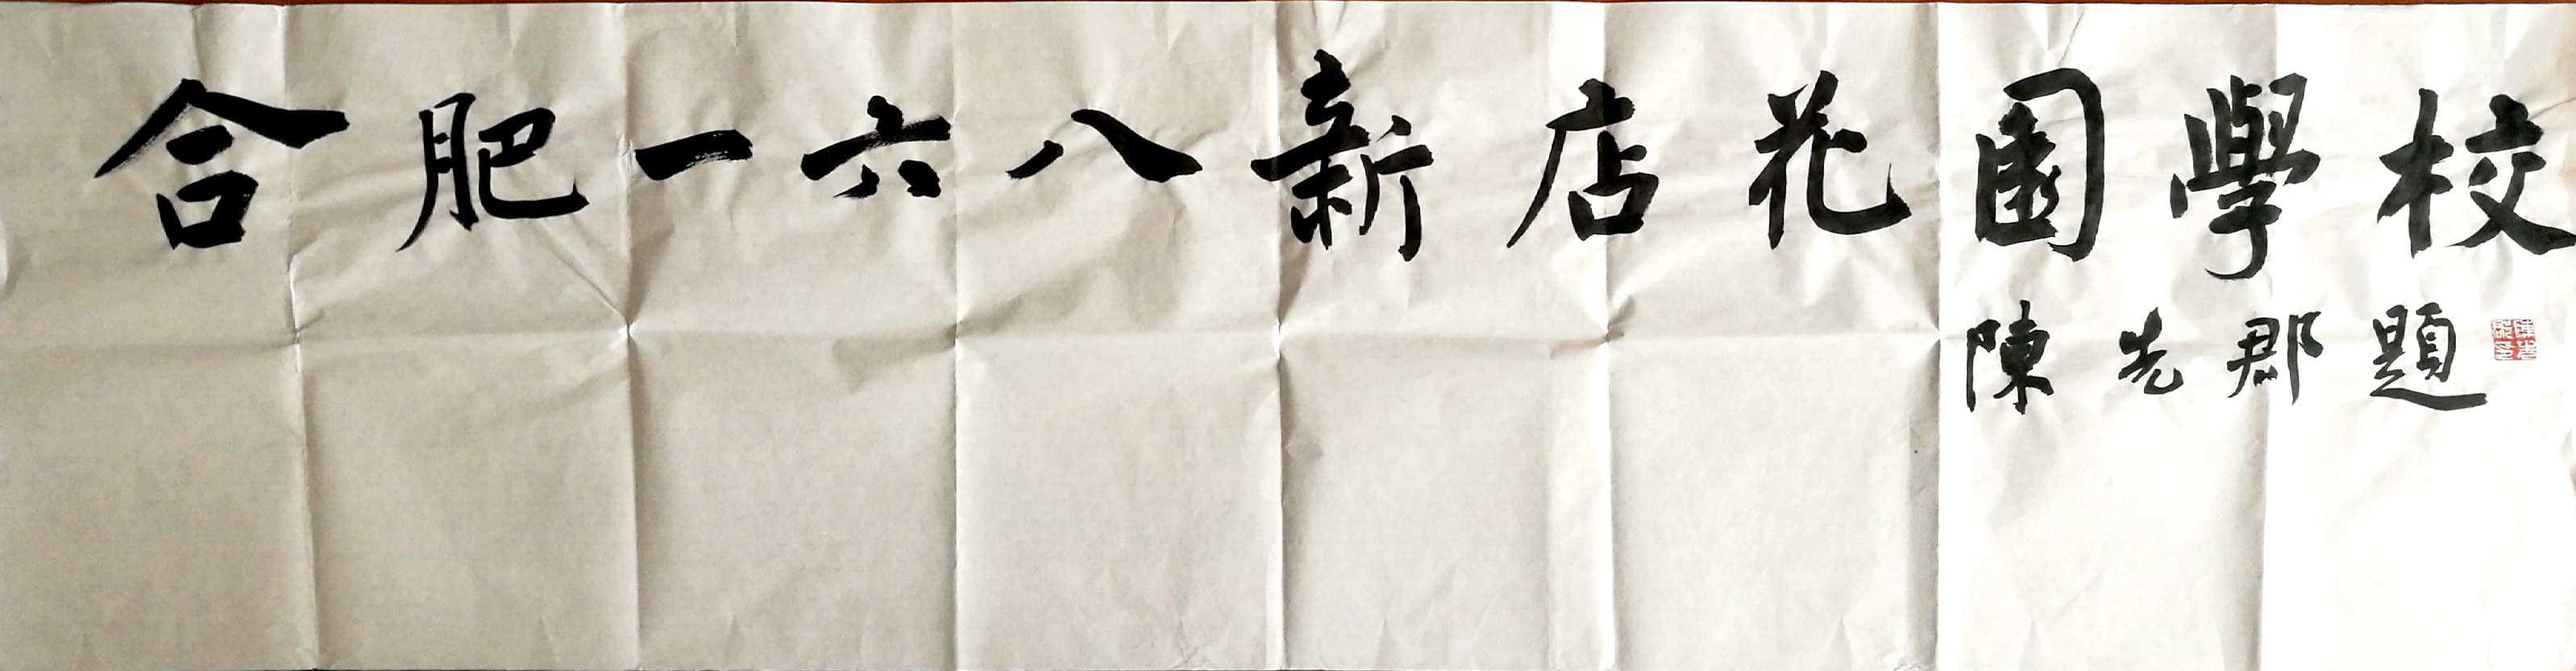 合肥一六八新店花園學校
陳先郡題